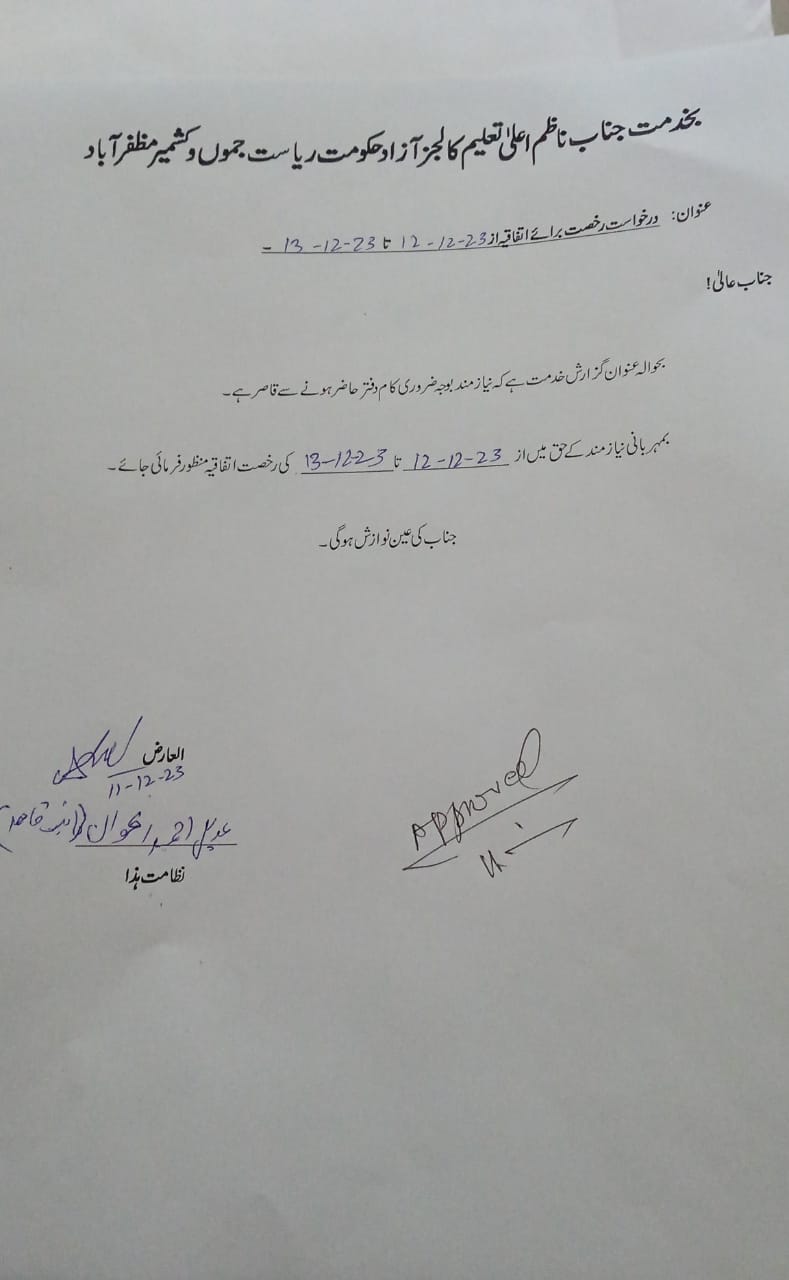 بخدمت جناب ناظم اعلیٰ تعلیم کالجز آزاد حکومت ریاست جموں و کشمیر مظفر آباد
عنوان: درخواست رخصت برائے اتفاقیہ از 12-12-23 تا 13-12-23 ۔
جناب عالیٰ!
بحوالہ عنوان گزارش خدمت ہے کہ نیاز مند بوجہ ضروری کام دفتر حاضر ہونے سے قاصر ہے۔
بمہربانی نیاز مند کے حق میں از 12-12-23 تا 13-12-23 کی رخصت اتفاقیہ منظور فرمائی جائے۔
جناب کی عین نوازش ہوگی۔
العارض
11-12-23
احمد اعوان (نائب قاصد)
نظامت ہذا
Approved